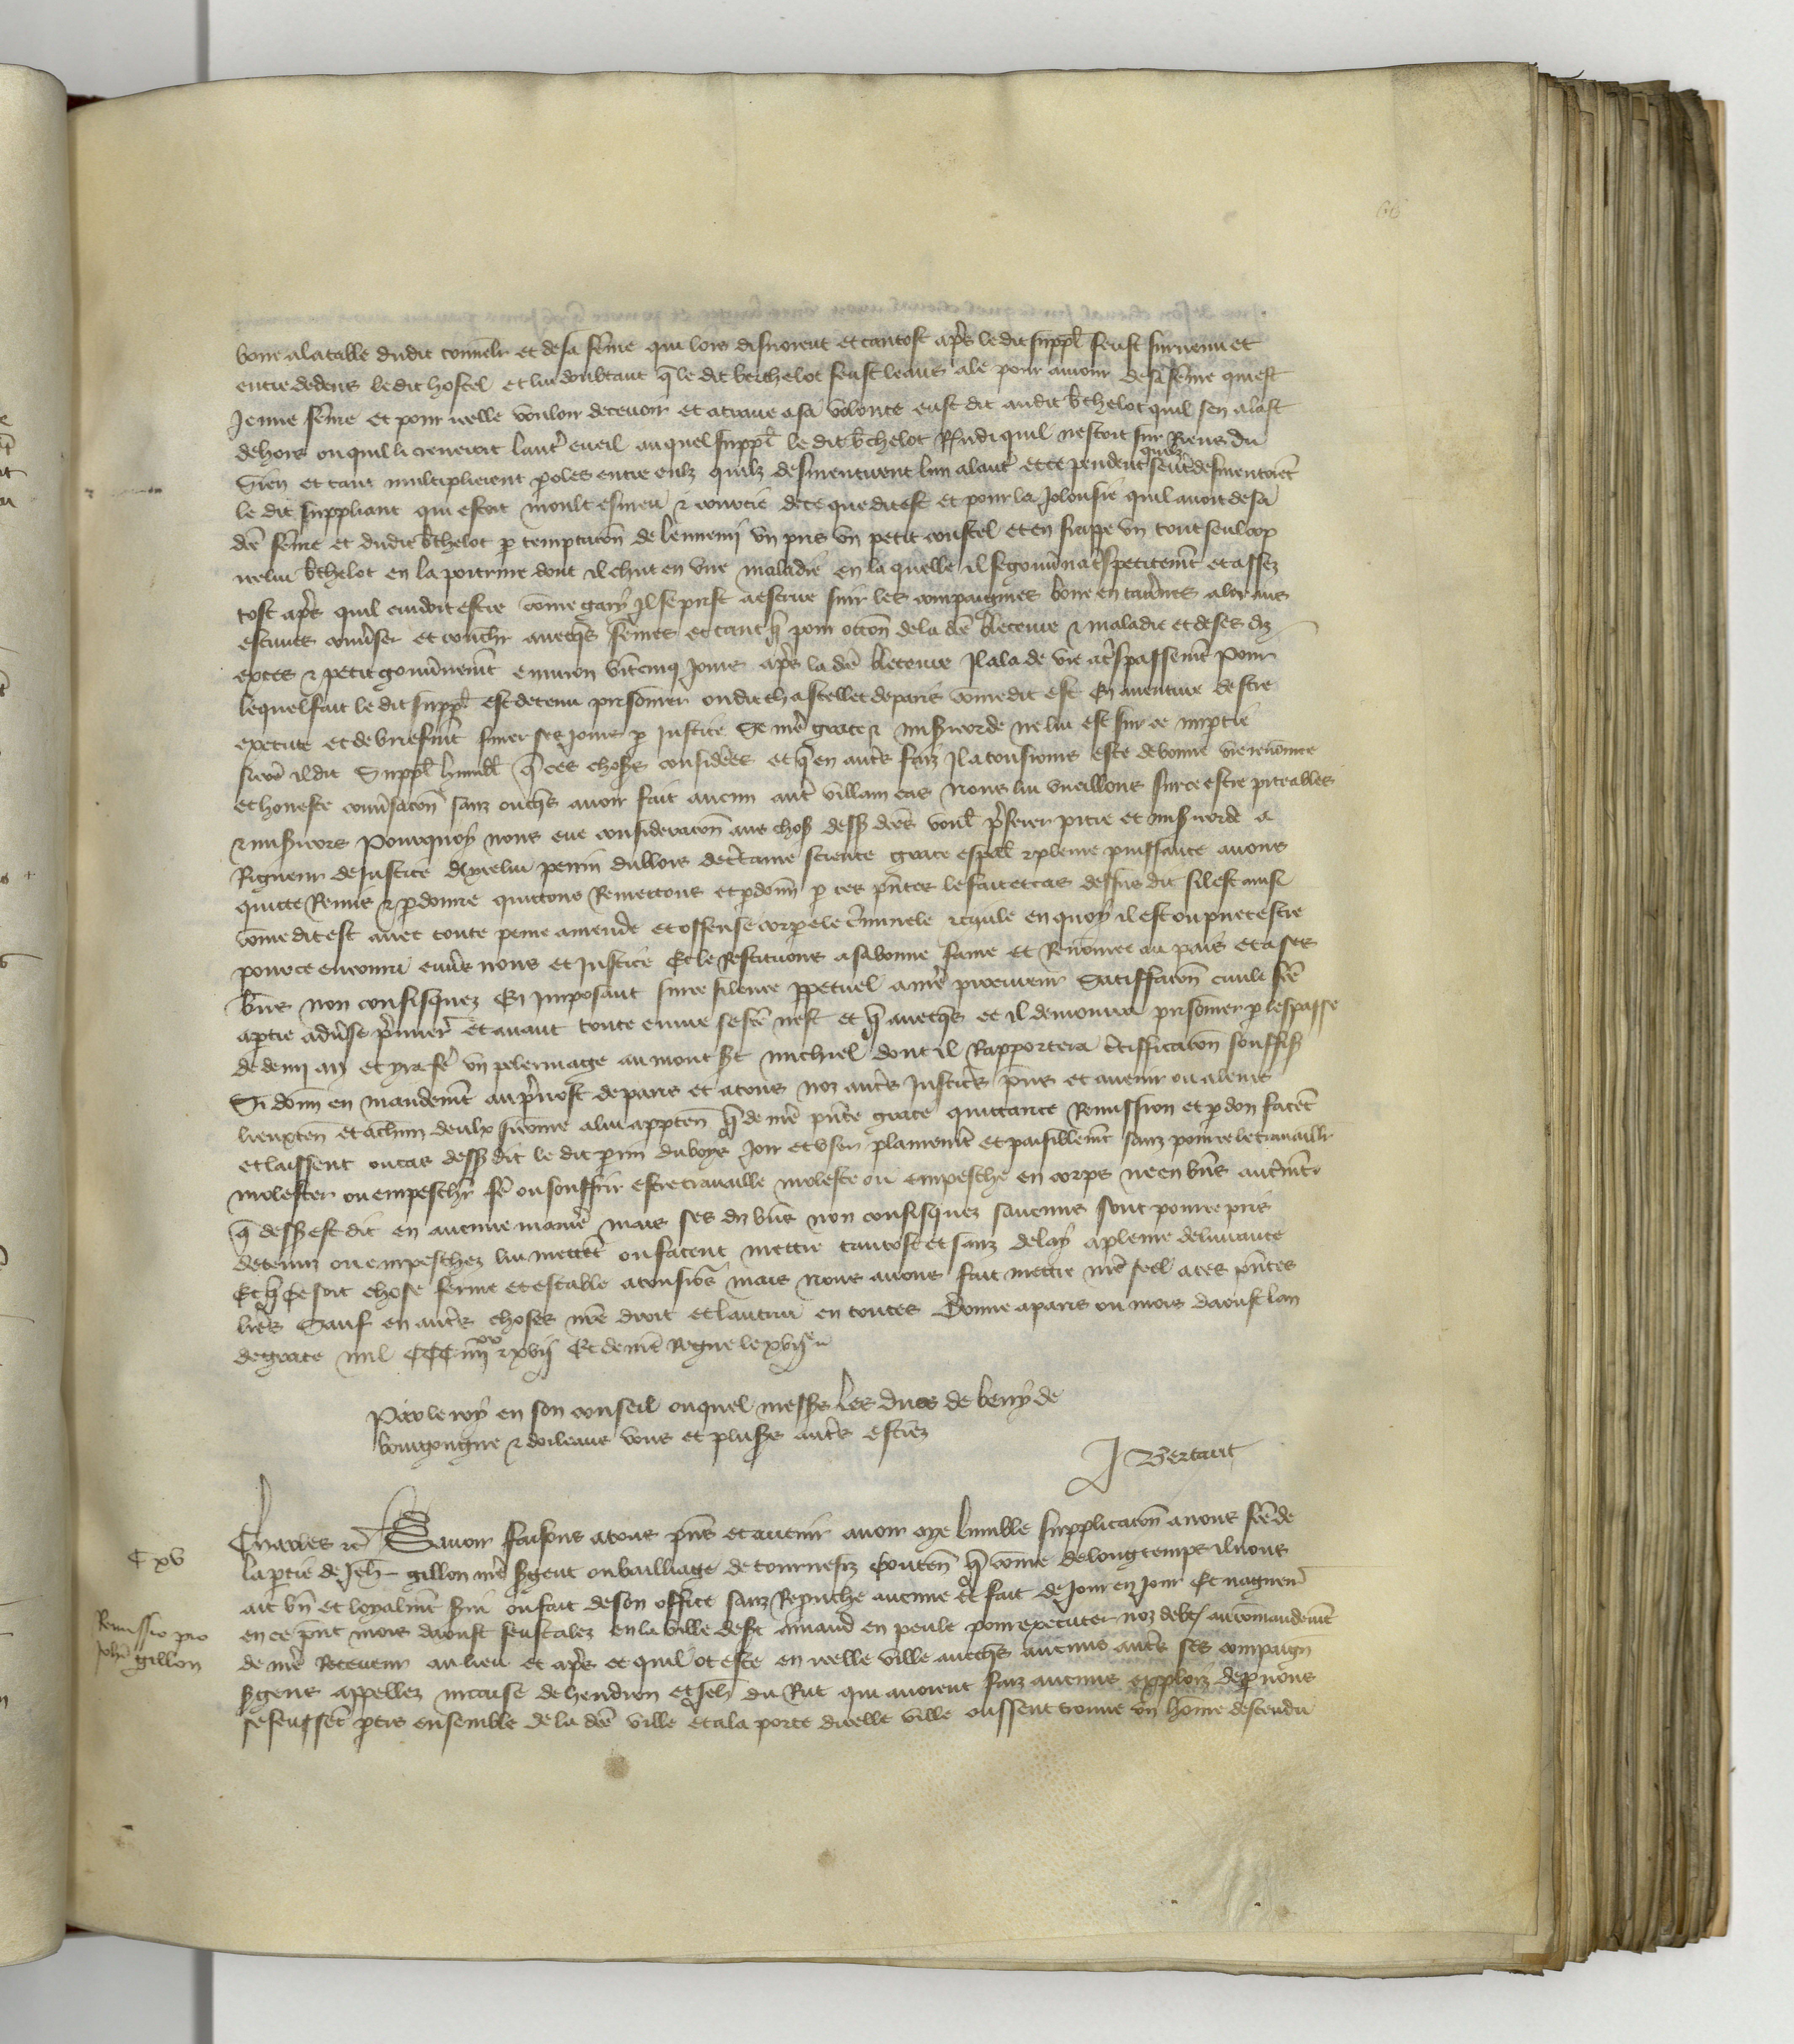 66
boire a la table dudit conseillr et de sa fēme qui lors disnoient et tantost apr̄s le dit suppl̄ feust survenu et
entre dedens le dit hostel et lui doubtant q̄ le dit berthelot feust leans ale pour avoir de sa fēme qui est
Jeune fēme et pour icelle vouloir decevoir et atraire a sa volonte eust dit audit b̄thelot quil sen alast
dehors ou quil li creveroit laut̄ eueil auquel suppl̄ le dit b̄thelot Rn̄di quil nestoit sur Riens du
sien et tant multiplierent p̄oles entre eulz quilz desmentirent lun a laut̄ et ce pendent quilz sent̄desmentoiēt
le dit suppliant qui estoit moult esmeu & courcie de ce que dit est et pour la Jalousie quil avoit de sa
dc̄e fēme et dudit b̄thelot p temptacōn de lennemi prist un petit coustel et en frappa un tout seul cop
icelui b̄thelot en la poitrine dont il chut en une maladie en la quelle il se gouv̄na t̄spetitemēt et assez
tost apr̄s quil cuidoit estre cōme gary Il se prist a estre sur les compaignies boire en tav̄nes aler aus
estuves conv̄ser et couchr avecq̄s fēmes et tant q̄ pour occōn de la dc̄e bleceure & maladie et de ses diz
exces & petit gouv̄nemēt environ vint cinq Jours apr̄s la dc̄e bleceure Il ala de vie a t̄spassemēt Pour
lequel fait le dit suppl̄ est detenu prisōnier ou dit chastellet de paris cōme dit est En aventure de estre
execute et de briefmēt finer ses Jours p Justice Se nr̄e grace & mis̄icorde ne lui est sur ce impartie
sicōe il dit Suppl̄ humbl̄ q̄ ces choses considerees et q̄ en aut̄s faiz Il a tousiours este de bonne vie renōmee
et honeste conv̄sacōn sanz oncq̄s avoir fait aucun aut̄ villain cas Nous lui vueillons sur ce estre piteables
& mis̄icors Pourquoy nous eue consideracōn aus choses dess̄ dc̄es voul̄ p̄ferer pitie et mis̄icorde a
Rigueur de Justice A Icelui perrin du bois de c̄taine science grace esp̄al & pleine puissance avons
quitte Remis & p̄donne quittons Remettons et p̄donn̄ p ces p̄ntes le fait et cas dessus dit sil est ainsi
cōme dit est avec toute peine amende et offense corporele c̄iminele & civile en quoy il est ou puet estre
pour ce encouru env̄s nous et Justice Et le Restituons a sa bonne fame et Renōmee au pais et a ses
bn̄s non confisquez En Imposant sur ce silence p̄petuel a nr̄e procureur Satisfacōn civile fc̄e
a p̄tie adv̄se p̄mier et avant toute euvre se fc̄e nest et q̄ avecq̄s ce il demourra prisōnier p lespasse
de demi an et yra fe͞r un pelerinage au mont s̄t michiel dont il Rapportera c̄tifficacōn souffis̄
Si donn̄ en mandemēt au p̄vost de paris et a tous noz aut̄s Justic̄s p̄ns et avenir ou a leurs
lieuxten̄ et a chun deulx sicōme a lui apptēn q̄ de nr̄e p̄nte grace quittance Remission et p̄don facēt
et laissent ou cas dess̄ dit le dit p̄rin du boys Joir et user plainemēt et paisiblemēt sanz pour ce le travaillr
molester ou empeschr fe͞r ou souffrir estre travaille moleste ou empesche en corps ne en bn̄s aut̄mēt
q̄ dess̄ est dit en aucune maniēe mais ses diz bn̄s non confisquez saucuns sont pour ce pris
detenuz ou empeschez lui mettēt ou facent mettre tantost et sanz delay a pleine delivrance
Et q̄ ce soit chose ferme et estable a tousiōs mais Nous avons fait mettre nr̄e seel a ces p̄ntes
lr̄es Sauf en aut̄s choses nr̄e droit et lautrui en toutes Donne a paris ou mois daoust lan
de grace mil CCC iiijxx & xvij Et de nr̄e Regne le xvije
Par le roy en son conseil ouquel mess̄s Les ducs de berry de
bourgongne & dorleans vous et plus̄s aut̄s estiez
J Bertaut
C xv
Remissio pro
Johē gillon
Charles &c̄ Savoir faisons a tous p̄ns et avenir avoir oye lumble supplicacōn a nous fc̄e de
la p̄tie de Jeh̄ gillon nr̄e s̄gent ou bailliage de tournesiz Conten̄ q̄ cōme de long temps il nous
ait bn̄ et loyalmēt s̄vi ou fait de son office sanz Reprouche aucune et fait de Jour en Jour Et naguer̄
en ce p̄nt mois daoust feust alez en la ville de s̄t amand en peule pour executer noz debt̄ au cōmandemēt
de nr̄e Receveur au lieu et apr̄s ce quil ot este en icelle ville avecq̄s aucuns aut̄s ses compaign̄
s̄gens appellez nicaise de hendion et Jeh̄ du Rut qui avoient faiz aucuns exploiz de p nous
se feussēt p̄tis ensemble de la dc̄e ville et a la porte dicelle ville eussent trouve un hōme descendu